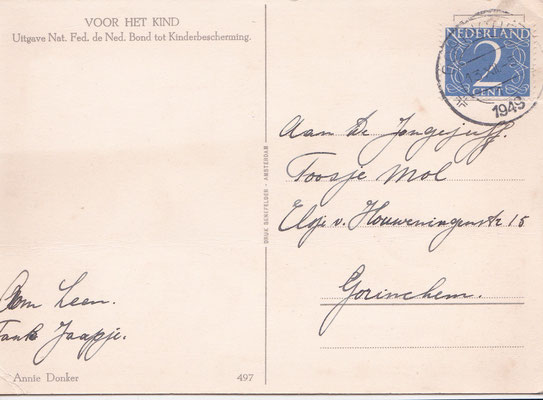 VOOR HET KIND
Uitgave Nat. Fed. de Ned. Bond tot Kinderbescherming.
NEDERLAND
2
CENT
1943
Aan De Jongejuff.
Toosje Mol
Elsje v. Houweningenstr 15
Gorinchem.
DRUK SENEFELDER - AMSTERDAM
Oom Leen.
Tante Jaapje.
Annie Donker
497